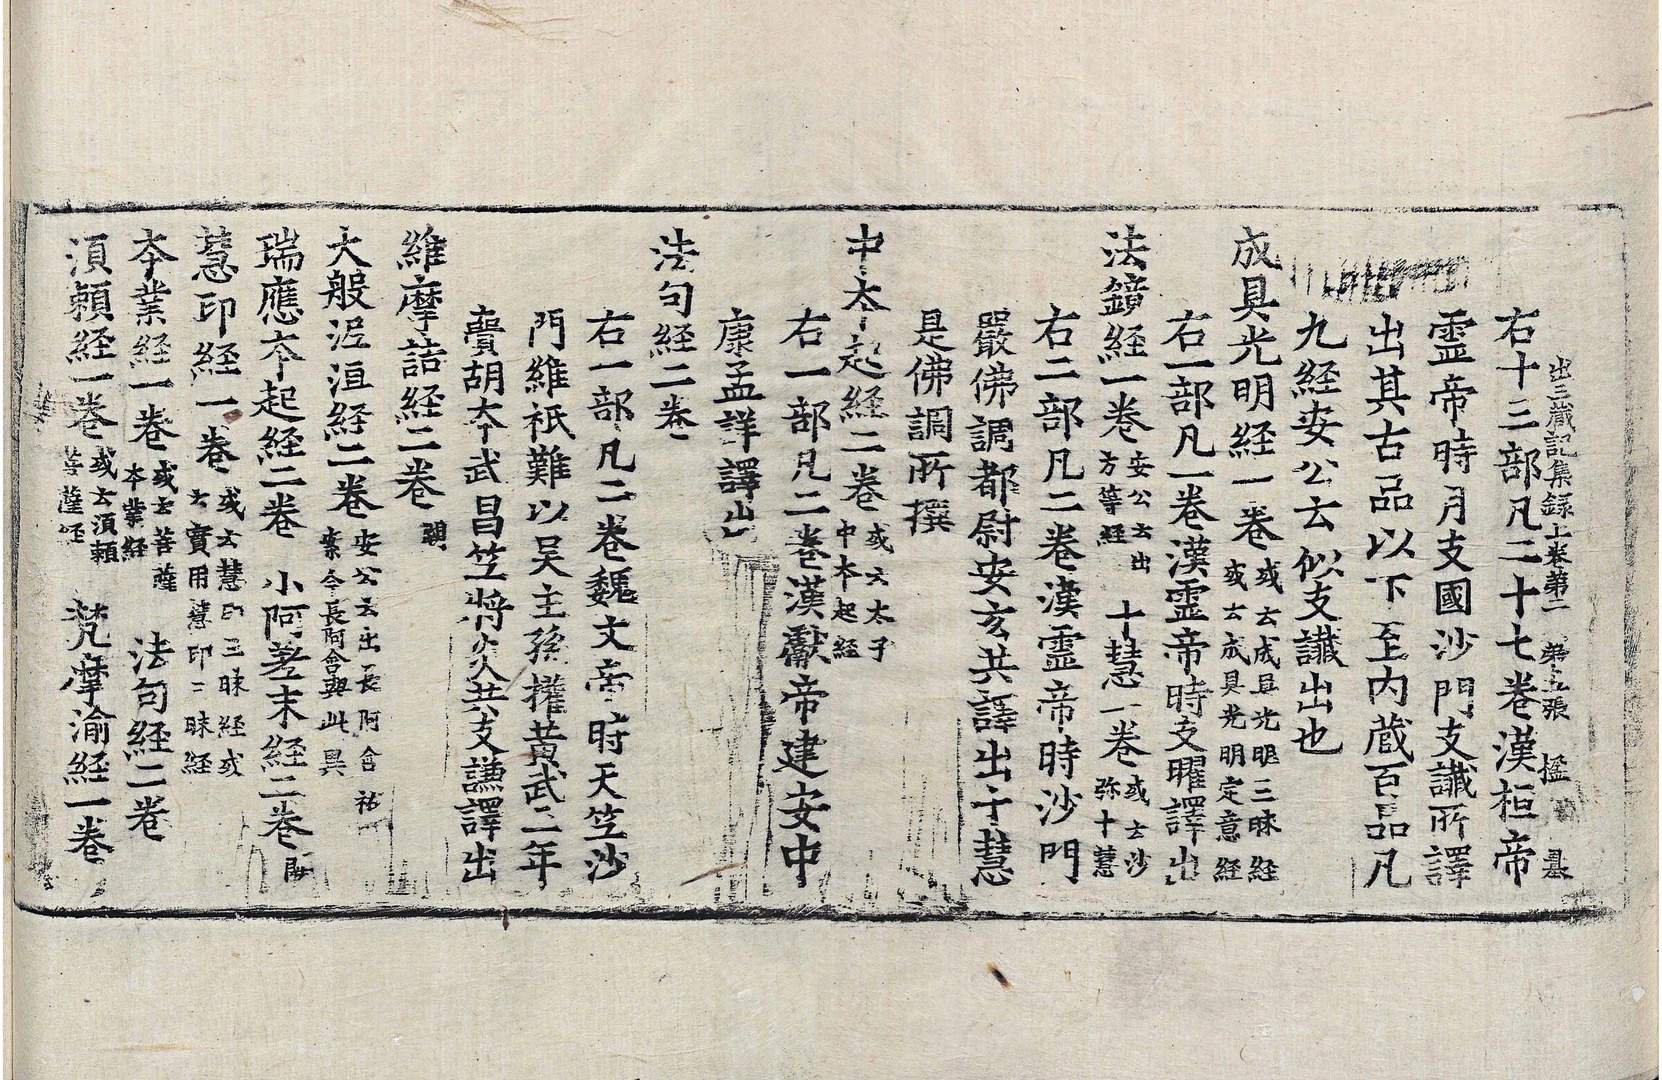 出三蔵記集録上卷第二 第五張 楹
右十三部凡二十七卷漢桓帝
霊帝時月支國沙門支讖所譯
出其古品以下至内蔵百品凡
九経安公云似支讖出也
成具光明経一卷或云成具光明三昧経或云成具光明定意経
右一部凡一卷漢霊帝時支曜譯出
法鏡経一卷安公云出方等経 十慧一卷或云沙弥十慧
右二部凡二卷漢霊帝時沙門
嚴佛調都尉安玄共譯出十慧
是佛調所撰
中夲起経二卷或云太子中夲起経
右一部凡二卷漢獻帝建安中
康孟詳譯出
法句経二卷
右一部凡二卷魏文帝時天竺沙
門維祇難以吴主孫權黄武三年
賷胡夲武昌竺將炎共支謙譯出
維摩詰経二卷闕
大般泥洹経二卷安公云出長阿含祐案今長阿含與此異
瑞應夲起経二卷 小阿差末経二卷闕
慧印経一卷或云慧印三昧経或云寶田慧印三昧経
夲業経一卷或云菩薩本業経 法句経二卷
湏頼経一卷或云湏頼菩薩経 梵摩渝経一卷